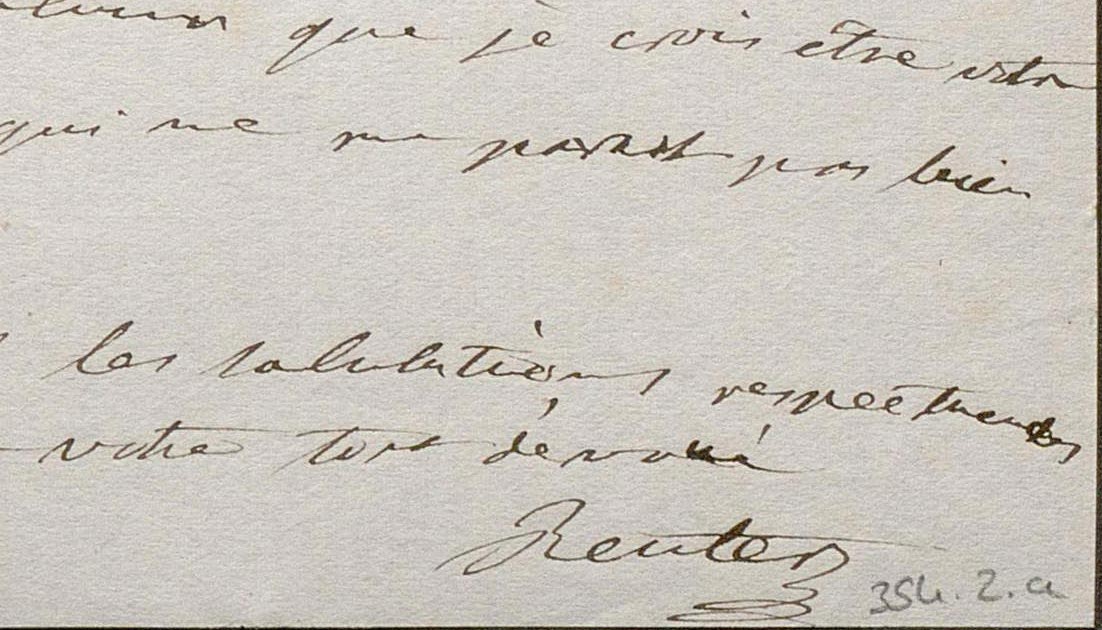 que je crois être votre
qui ne me parait pas bien
les salutations respectueuses
votre tout dévoué
Reuter
354.2.a